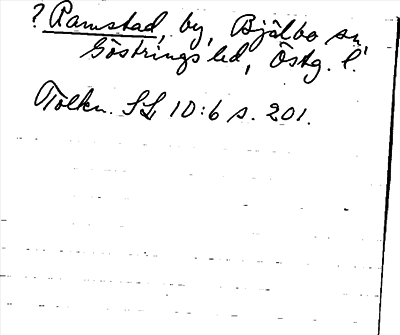 ? Ramstad, by, Bjälbo sn,
Göstrings hd, Östg. l.
Tolkn. SL 10:6 s. 201.